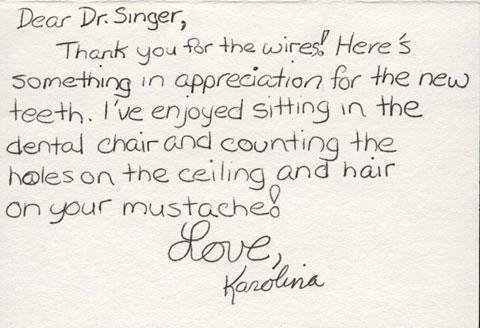 Dear Dr. Singer,
Thank you for the wires! Here's
something in appreciation for the new
teeth. I've enjoyed sitting in the
dental chair and counting the
holes on the ceiling and hair
on your mustache!
Love,
Karolina